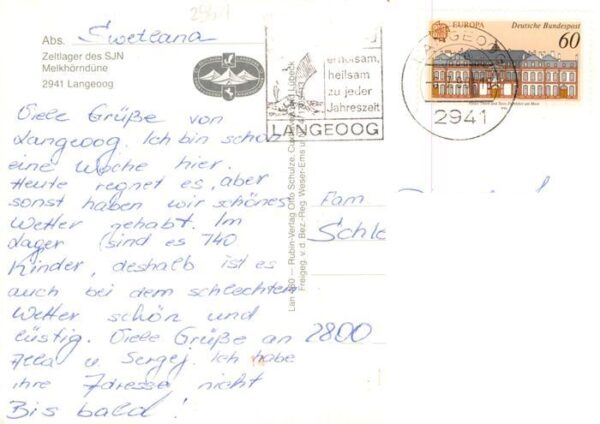 Abs. Swetlana
Zeltlager des SJN
Melkhörndüne
2941 Langeoog
Viele Grüße von
Langeoog. Ich bin schon
eine Woche hier.
Heute regnet es, aber
sonst haben wir schönes
Wetter gehabt. Im
Lager sind es 740
Kinder, deshalb ist es
auch bei dem schlechten
Wetter schön und
lustig. Viele Grüße an
Alla u. Sergej. Ich habe
ihre Adresse nicht
Bis bald!
Rubin-Verlag Otto Schulze, Cuxhaven und Lübeck
Freigeg. v. d. Bez.-Reg. Weser-Ems u.
erholsam,
heilsam
zu jeder
Jahreszeit
LANGEOOG
EUROPA
Deutsche Bundespost
60
LANGEOOG
2941
Fam
Schle
2800